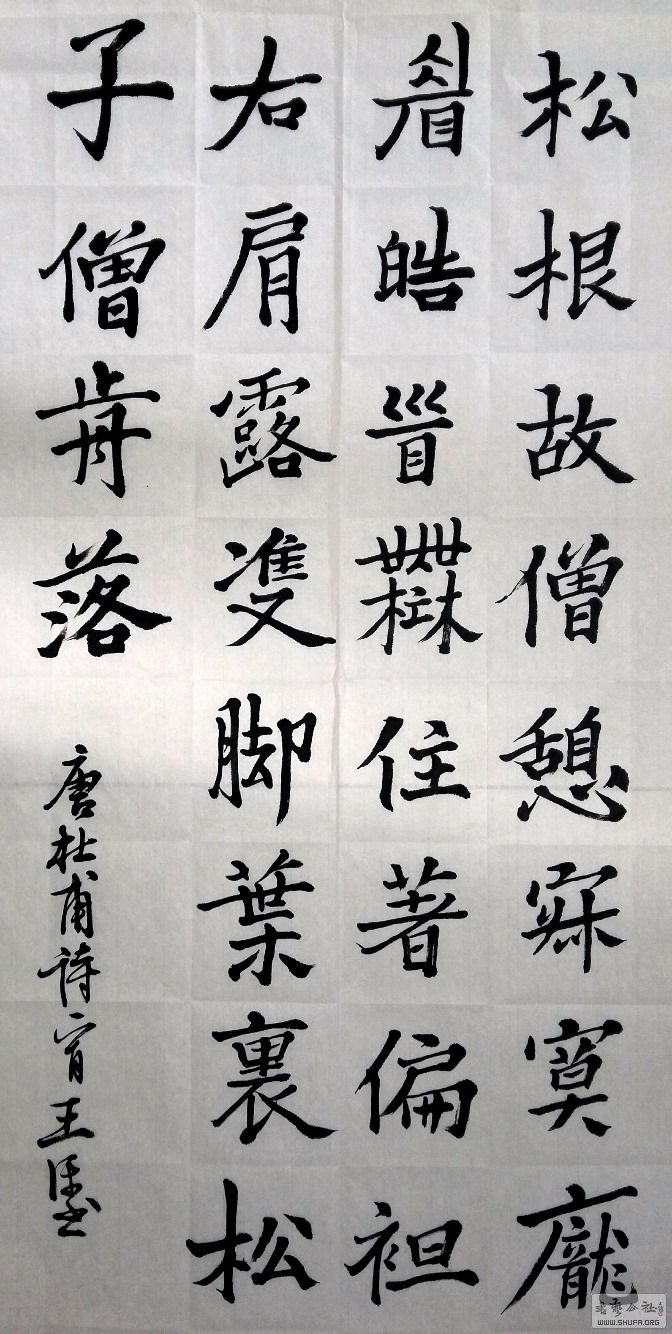 松根故僧憩寂寞龐
眉皓首無住著偏袒
右肩露雙脚葉裏松
子僧歬落
唐杜甫詩 王
书艺公社
WWW.SHUFA.ORG